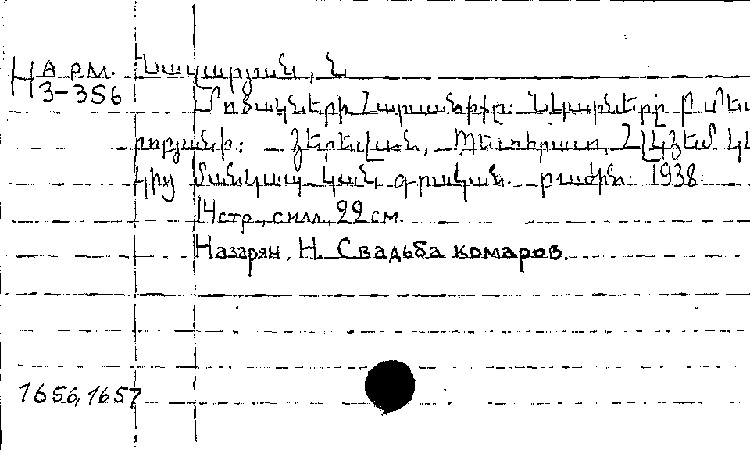 Н Арм. Նազարյան, Ն
3-356
Մոծակների հարսանիքը: Նկարները Բ. Մես
րոբյանի: Յերեվան, Պետհրատ, ՀԼԿՅԵՄ Կ
կից մանկապ կան գրական. բաժին 1938
14 стр., силл, 22 см.
Назарян, Н. Свадьба комаров.
1656, 1657